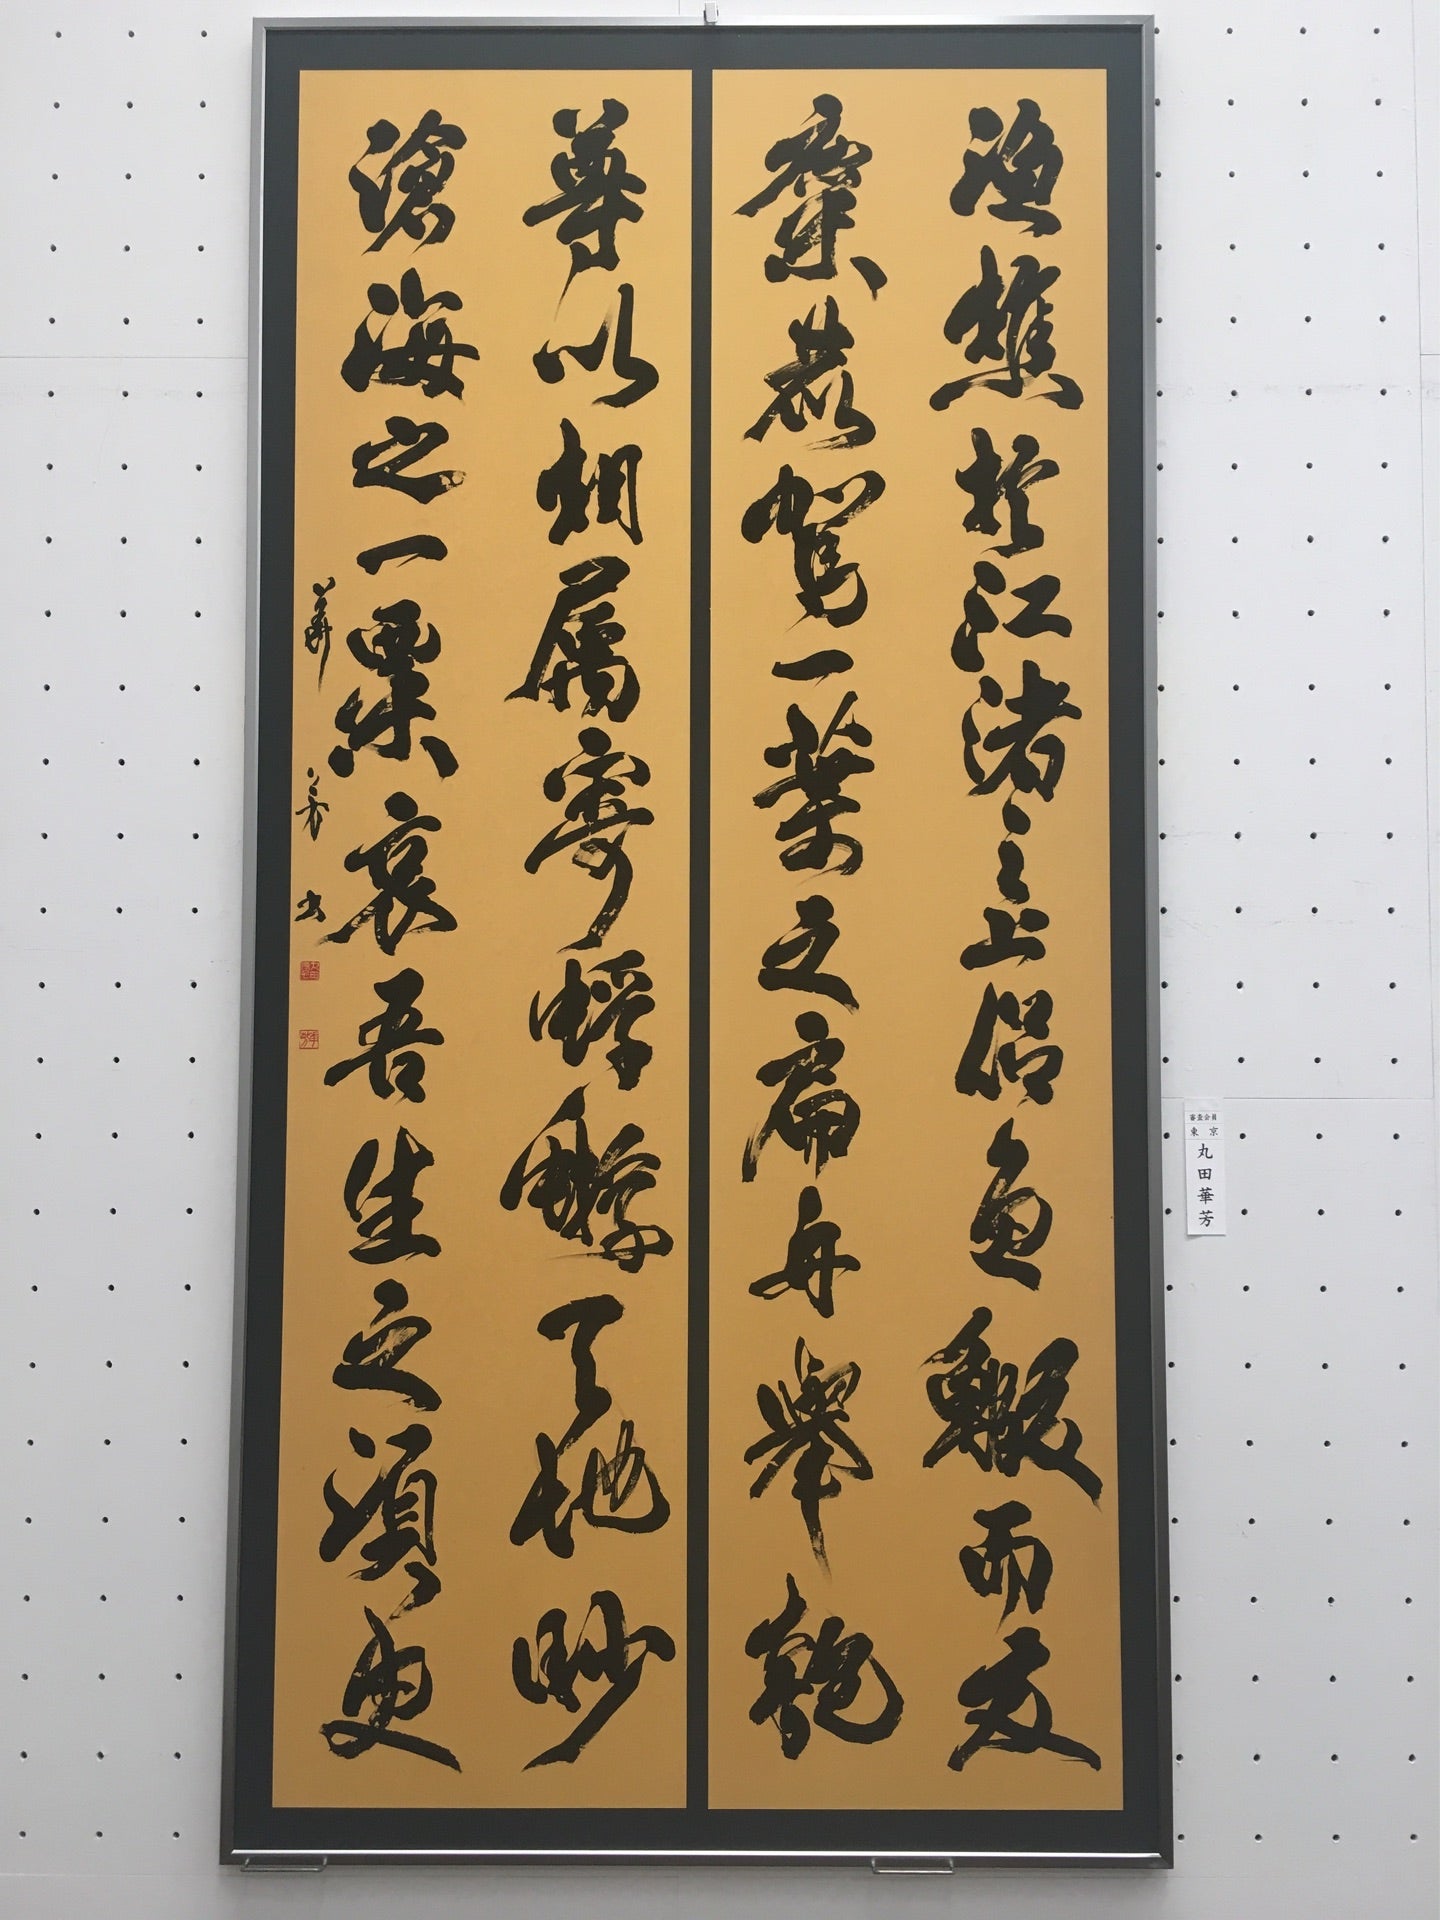 漁樵於江渚之上侶魚鰕而友
麋鹿駕一葉之扁舟舉匏
尊以相屬寄蜉蝣天地眇
滄海之一粟哀吾生之須臾
華芳書
審査会員
東京
丸田華芳